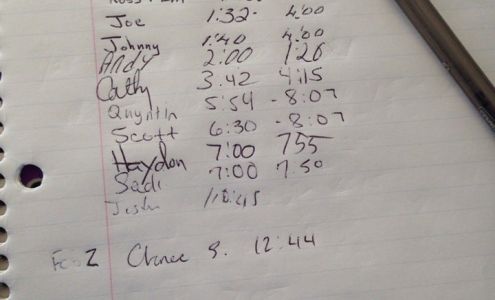 Joe 1:32- 4:00
Johnny 1:40 4:00
Andy 2:00 1:20
Cathy 3.42 4:15
Quyntin 5:54 - 8:07
Scott 6:30 - 8:07
Haydon 7:00 755
Sadi 7:00 7:50
Justin
Chance 9. 12:44